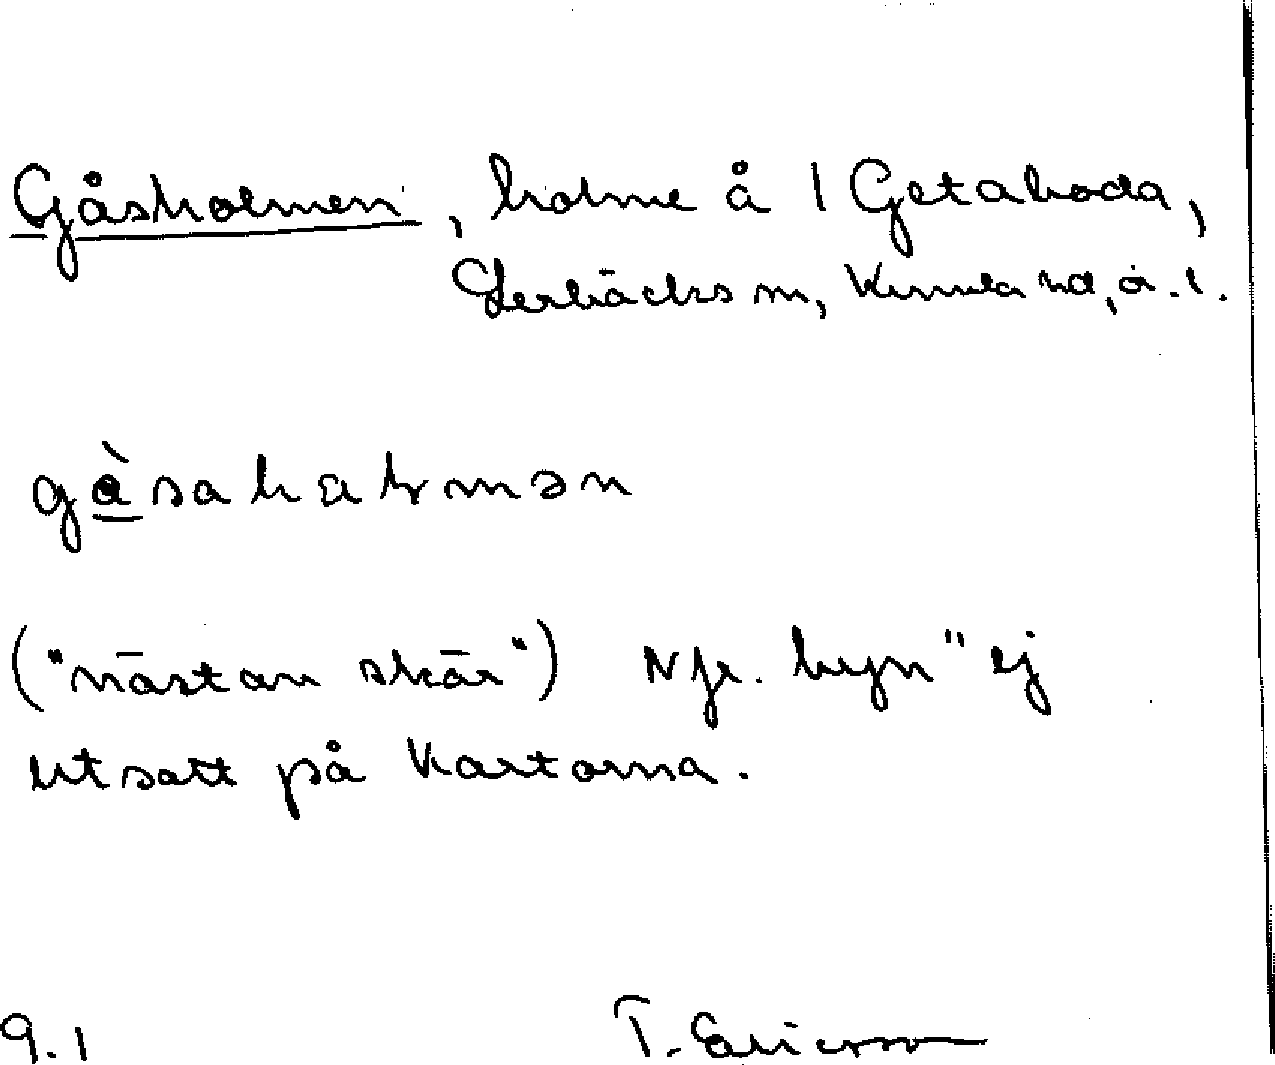 Gåsholmen, holme å 1 Getaboda,
Lerbäcks sn, Kumla hd, ö.l.
gåsahalmən
("nästan skär") N fr. byn" ej
utsatt på kartorna.
9.1 T. Ericsson